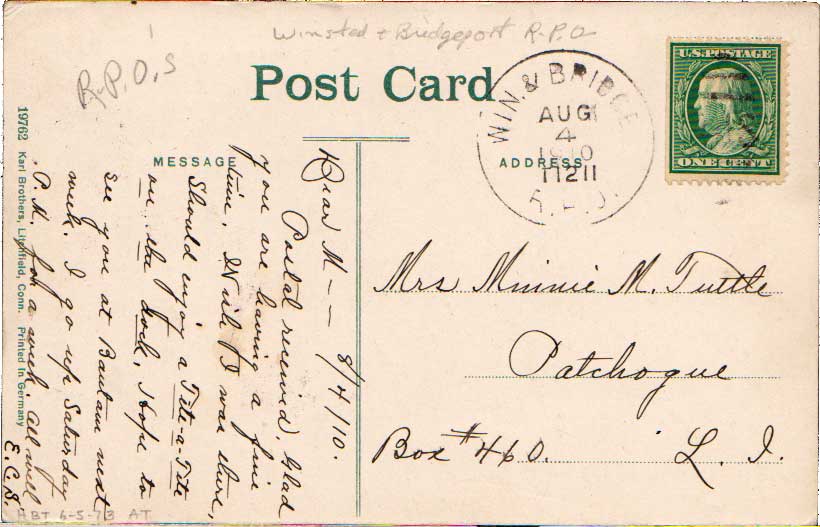 Winsted & Bridgeport R.P.O
R.P.O.S
Post Card
U.S. POSTAGE
ONE CENT
WIN. & BRIDGE
AUG
4
1910
R.P.O.
MESSAGE
ADDRESS
19762 Karl Brothers, Litchfield, Conn. Printed in Germany
8/4/10.
Dear M - -
Postal received. Glad
you are having a fine
time. Wish I was there,
Should enjoy a Tête-a-Tête
on the dock. Hope to
see you at Bantam next
week. I go up Saturday
P.M. for a week. All well
E.C.S.
Mrs Minnie M. Tuttle
Patchogue
Box # 460. L. I.
HBT 6-5-73 AT